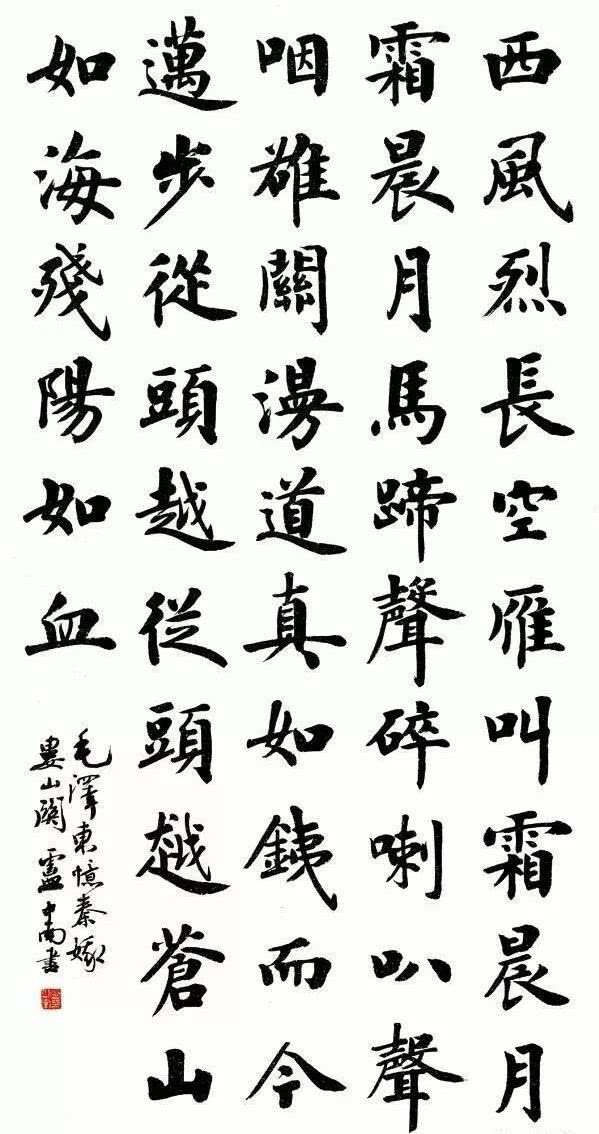 西風烈長空雁叫霜晨月
霜晨月馬蹄聲碎喇叭聲
咽雄關漫道真如鐵而今
邁步從頭越從頭越蒼山
如海殘陽如血
毛澤東憶秦娥
婁山關盧中南書